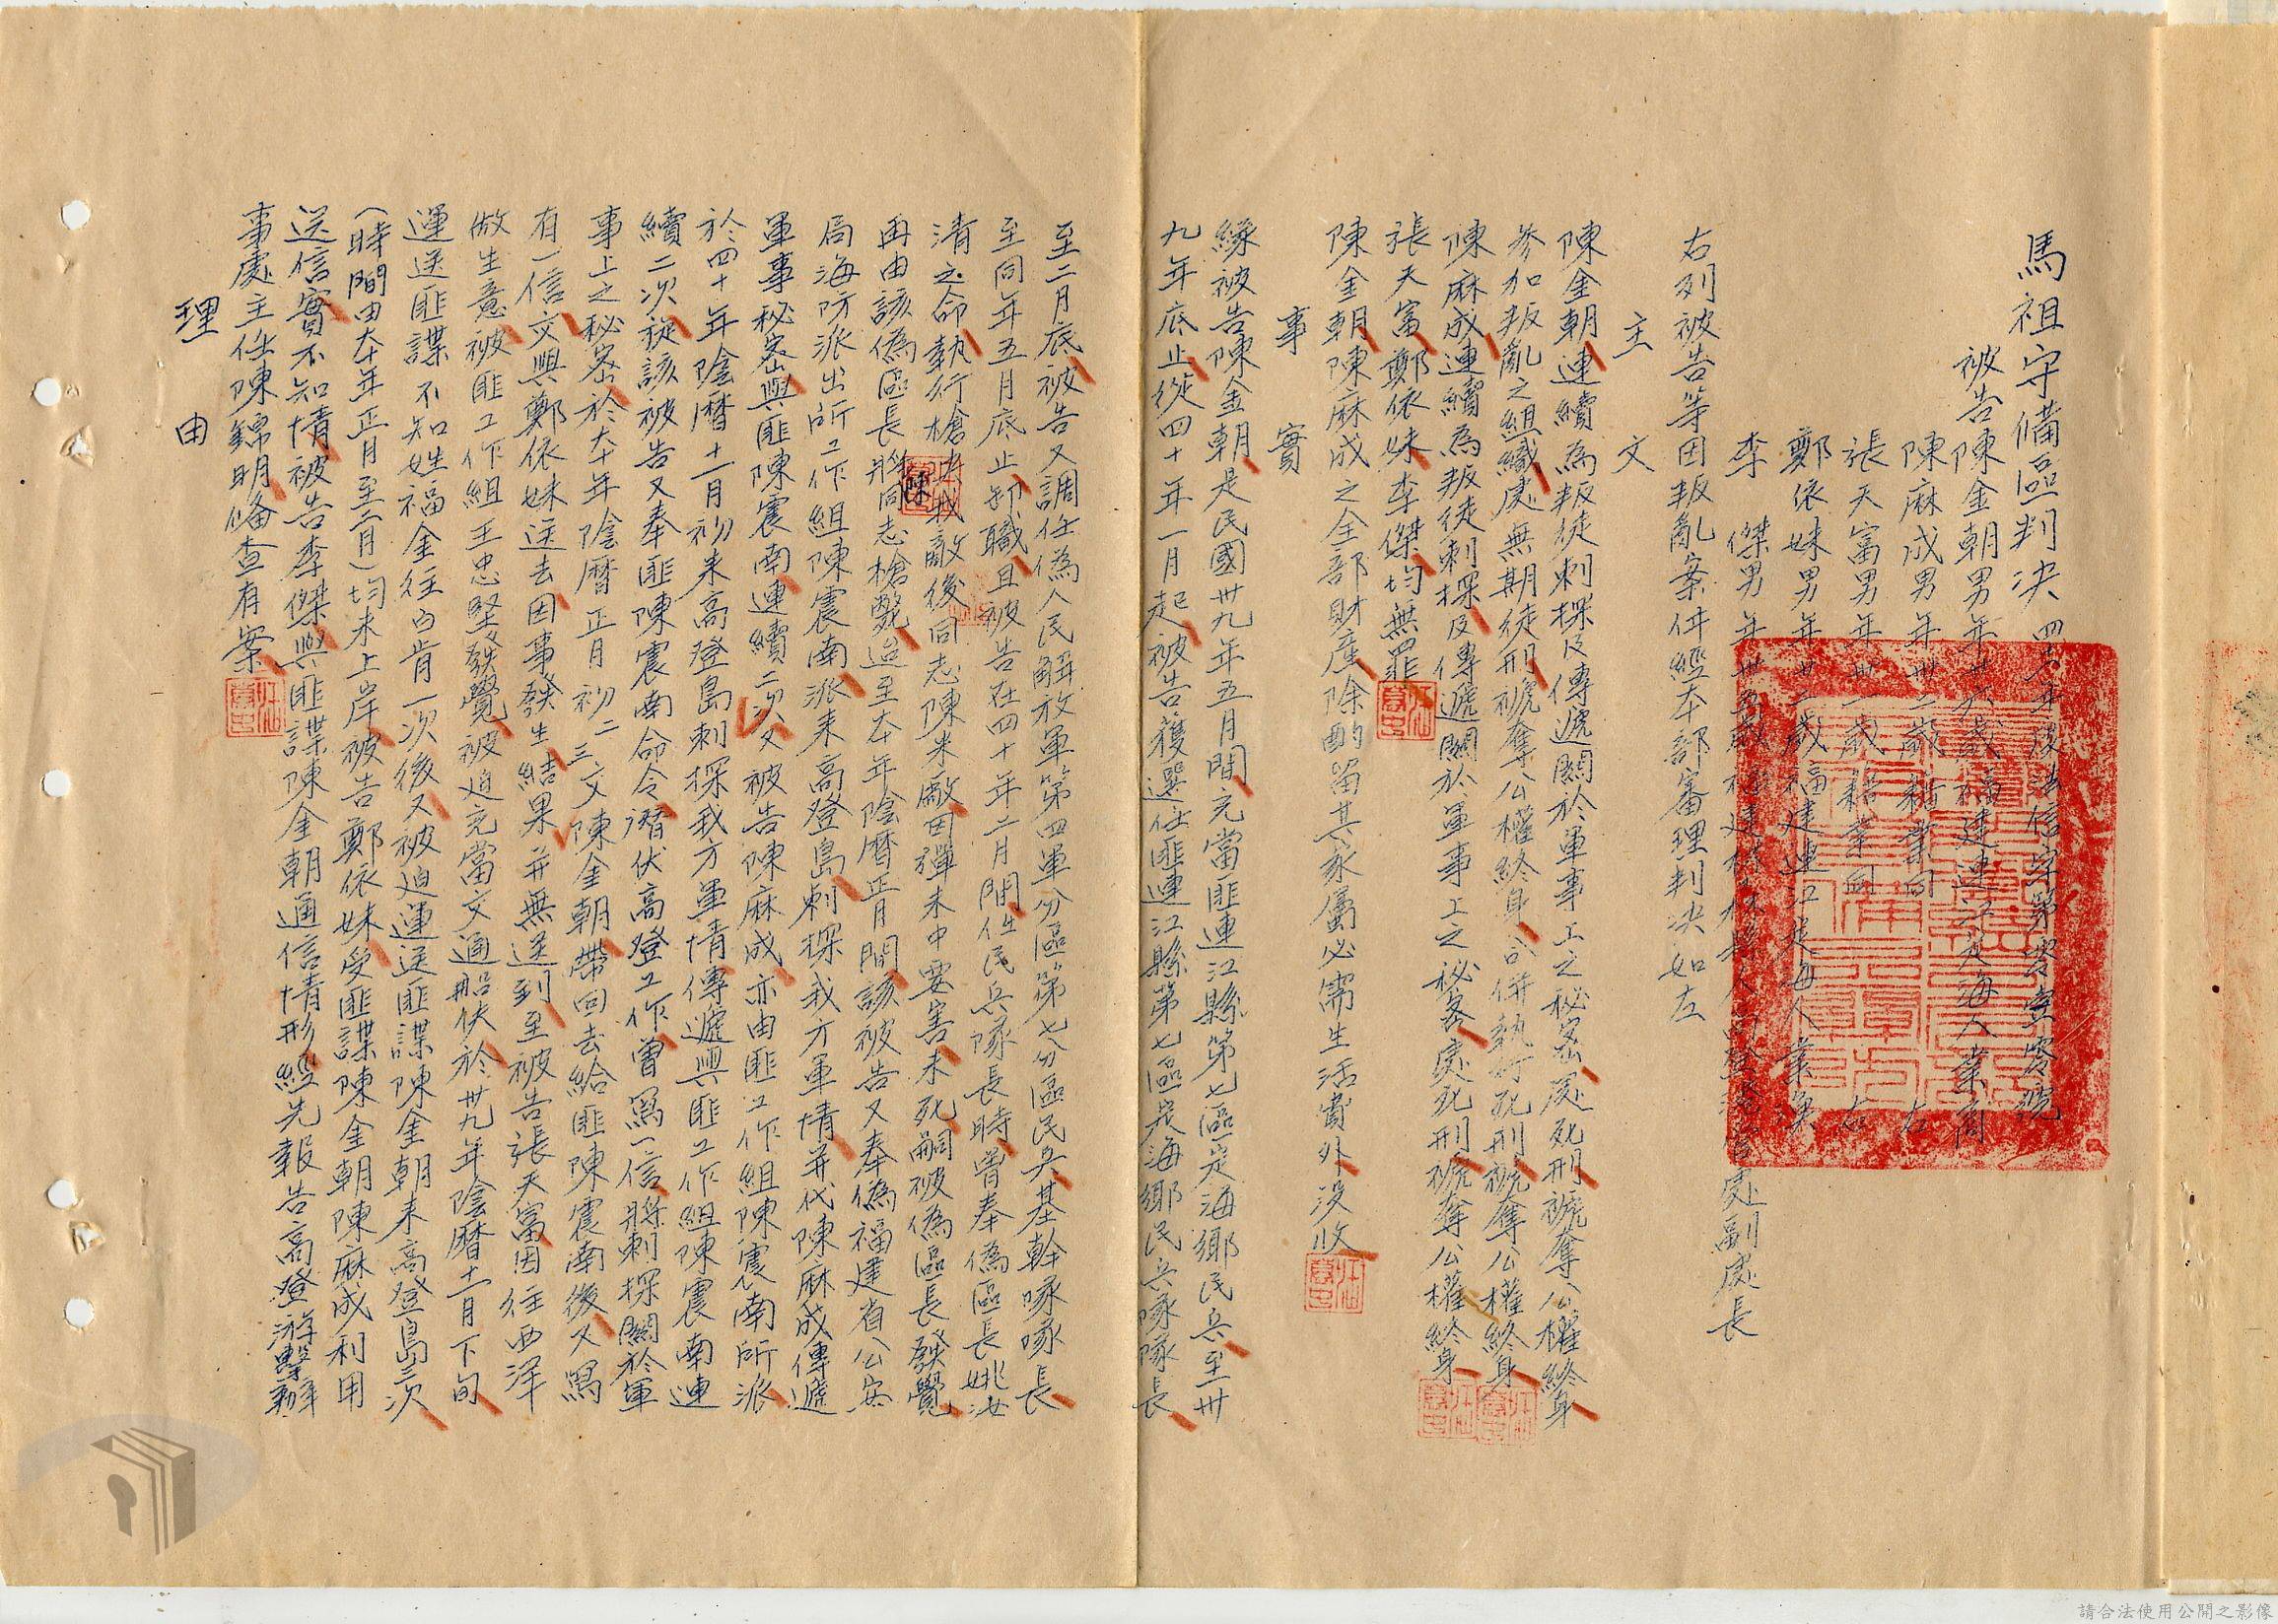 馬祖守備區判決
被告陳金朝男年卅六歲福建連江定海人業商
陳麻成男年卅二歲籍業同右
張天富男年卅一歲籍業同右
鄭依妹男年廿二歲福建連江定海人業漁
李 傑男年卅五歲福建林森縣人高登漁管處副處長
右列被告等因叛亂案件經本部審理判決如左
主 文
陳金朝連續為叛徒刺探及傳遞關於軍事上之秘密處死刑褫奪公權終身
參加叛亂之組織處無期徒刑褫奪公權終身合併執行死刑褫奪公權終身
陳麻成連續為叛徒刺探及傳遞關於軍事上之秘密處死刑褫奪公權終身
張天富鄭依妹李傑均無罪
陳金朝陳麻成之全部財產除酌留其家屬必需生活費外沒收
事 實
緣被告陳金朝是民國卅九年五月間充當匪連江縣第七區定海鄉民兵至卅
九年底止從四十年一月起被告獲選任匪連江縣第七區定海鄉民兵隊隊長
至二月底被告又調任偽人民解放軍第四軍分區第七分區民兵基幹隊隊長
至同年五月底止卸職且被告在四十年二月間任民兵隊長時曾奉偽區長姚汝
清之命執行槍決我敵後同志陳米敵因彈未中要害未死嗣被偽區長發覺
再由該偽區長將同志槍斃迨至本年陰曆正月間該被告又奉偽福建省公安
局海防派出所工作組陳震南派來高登島刺探我方軍情并代陳麻成傳遞
軍事秘密與匪陳震南連續二次又被告陳麻成亦由匪工作組陳震南所派
於四十年陰曆十一月初來高登島刺探我方軍情傳遞與匪工作組陳震南連
續二次旋該被告又奉匪陳震南命令潛伏高登工作曾寫一信將刺探關於軍
事上之秘密於本十年陰曆正月初二三交陳金朝帶回去給匪陳震南後又寫
有一信交與鄭依妹送去因事發生結果并無送到至被告張天富因往西洋
做生意被匪工作組王忠堅發覺被迫充當交通船伕於卅九年陰曆十一月下旬
運送匪諜不知姓福金往白肯一次後又被迫運送匪諜陳金朝來高登島三次
（時間由本十年正月至二月）均未上岸被告鄭依妹受匪諜陳金朝陳麻成利用
送信實不知情被告李傑與匪諜陳金朝通信情形經先報告高登游擊辦
事處主任陳錦明備查有案
理 由
請合法使用公開之影像